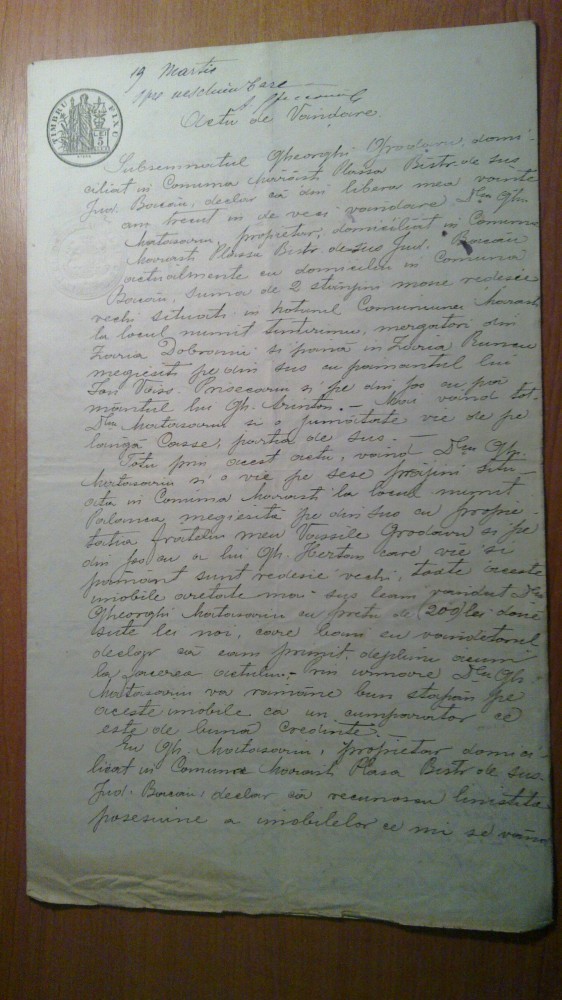 19 Martie
spre deschidere
TIMBRU FIX
Actu de Vandare.
Subsemnatul Gheorghi Grodaru, domi-
ciliat in Comuna Mărăsti Plassa Bistr. de sus
Jud. Bacău, declar că din libera mea vointe
am trecut in de veci vandare Dlui Gh.
Matasaru propietar, domiciliat in Comuna
Marasti Plassa Bistr. de sus Jud. Bacău
actualmente cu domiciliu in Comuna
Bacău, suma de 2 stânjini mosie redesie
vechi situati in hotarul Comunei Marasti
la locul numit, mergători din
Zaria Dobreanii si pănă in Zaria Runcu
megiesiti pe din sus cu pamantul lui
Ion Vass. Priseccariu si pe din jos cu pă
mântul lui Gh. – Mai vând tot
Dlui Matasaru si o jumătate vie de pe
langă Casse, partia de sus. –
Totu prin acest actu, vând Dlui Gh.
Matasaru si o vie pe sese prăjini situ-
ata in Comuna Marasti la locul numit
Palanca megiesită pe din sus cu proprie-
tatia fratelui meu Vassile Grodaru si pe
din jos cu a lui Gh. Hertan care vie si
pământ sunt redesie vechi, toate aceste
imobile aretate mai sus leam vandut Dlui
Gheorghi Matasaru cu pretu de (200) lei doue
sute lei noi, care bani eu vandetorul
declar că eam primit deplini acum
la facerea actului. – in urmare Dlu Gh.
Matasaru va rămâne bun stapân pe
aceste imobile ca un cumparator ce
este de buna credinte.
Eu Gh. Matasaru, propietar domici-
liat in Comuna Marasti Plasa Bistr. de sus
Jud. Bacau, declar că recunosc linistita
posesiune a imobilelor ce mi se vând